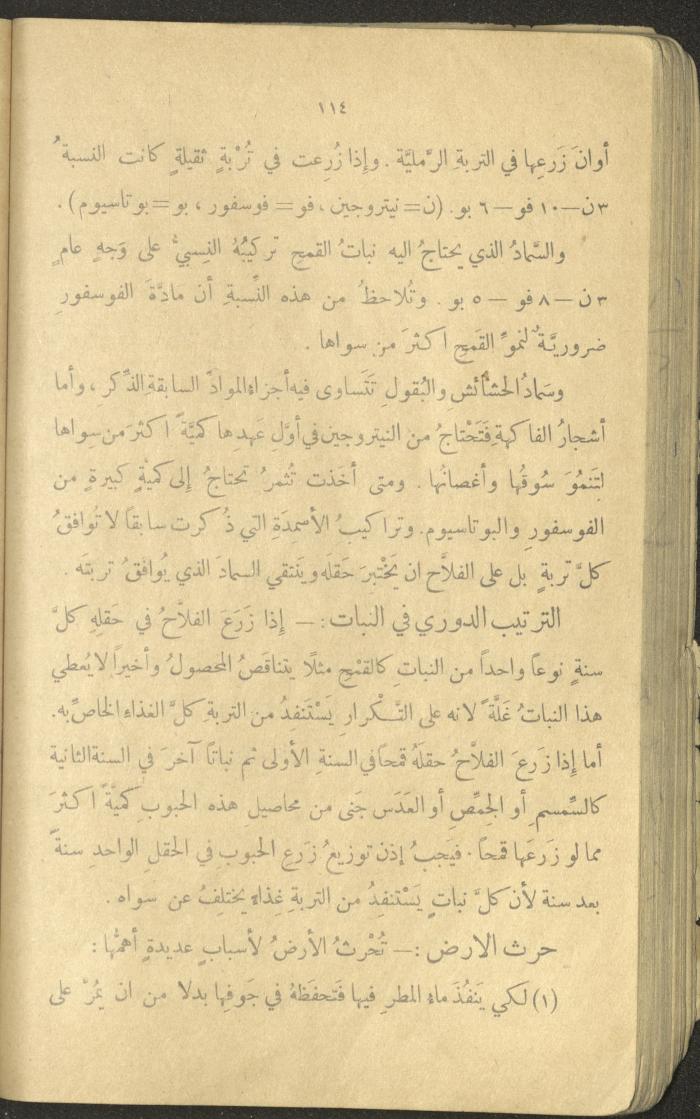 ١١٤
أوانَ زَرعِها في التربةِ الرَّمليَّة . وإِذا زُرِعت في تُرْبةٍ ثقيلةٍ كانت النسبةُ
٣ ن — ١٠ فو — ٦ بو . (ن = نيتروجين ، فو = فوسفور ، بو = بوتاسيوم) .
والسَّمادُ الذي يحتاجُ اليه نباتُ القمحِ تركيبُهُ النِسبيُّ على وَجهٍ عامٍ
٣ ن — ٨ فو — ٥ بو . وتُلاحظُ من هذه النِّسبةِ أن مَادَّةَ الفوسفورِ
ضروريَّةٌ لنموِّ القَمحِ اكثرَ من سواها .
وسَمادُ الحشائشِ والبُقولِ تَتَساوى فيه أجزاءُ الموادِّ السابقةِ الذِّكرِ ، وأما
أشجارُ الفاكهةِ فَتَحْتاجُ من النيتروجين في أوَّلِ عَهدِها كميَّةً اكثرَ من سِواها
لِتَنمُوَ سُوقُها وأغصانُها . ومتى أخَذت تُثمرُ تحتاجُ إلى كميةٍ كبيرةٍ من
الفوسفورِ والبوتاسيوم . وتراكيبُ الأسمدَةِ التي ذُكرت سابقاً لا تُوافقُ
كلَّ تربةٍ بل على الفلاَّح ان يَخْتبرَ حَقلَه ويَنتقي السمادَ الذي يُوافقُ تربتَه .
الترتيب الدوري في النبات : — إِذا زَرَعَ الفلاَّحُ في حَقلِهِ كلَّ
سنةٍ نوعاً واحداً من النباتِ كالقمْحِ مثلًا يتناقَصُ المحصولُ وأخيراً لا يُعطي
هذا النباتُ غَلَّةً لانه على التَّكرارِ يَسْتَنفِدُ من التربةِ كلَّ الغذاءِ الخاصِّ به .
أما إِذا زَرعَ الفلاَّحُ حقلَهُ قمحاً في السنةِ الأولى ثم نباتاً آخرَ في السنة الثانية
كالسِّمسمِ أو الحِمِّصِ أو العَدَسِ جَنى من محاصيلِ هذه الحبوبِ كميَّةً اكثرَ
مما لو زَرَعَها قمحاً . فيَجبُ إذن توزيعُ زَرعِ الحبوبِ في الحقلِ الواحدِ سنةً
بعد سنة لأن كلَّ نباتٍ يَسْتنفِدُ من التربةِ غِذاءً يختلِفُ عن سواه .
حرث الارض : — تُحْرثُ الأرضُ لأسبابٍ عديدةٍ أهمُّها :
(١) لكي يَنفُذَ ماءُ المطرِ فيها فَتحفَظَهُ في جَوفِها بدلا من ان يمُرَّ على